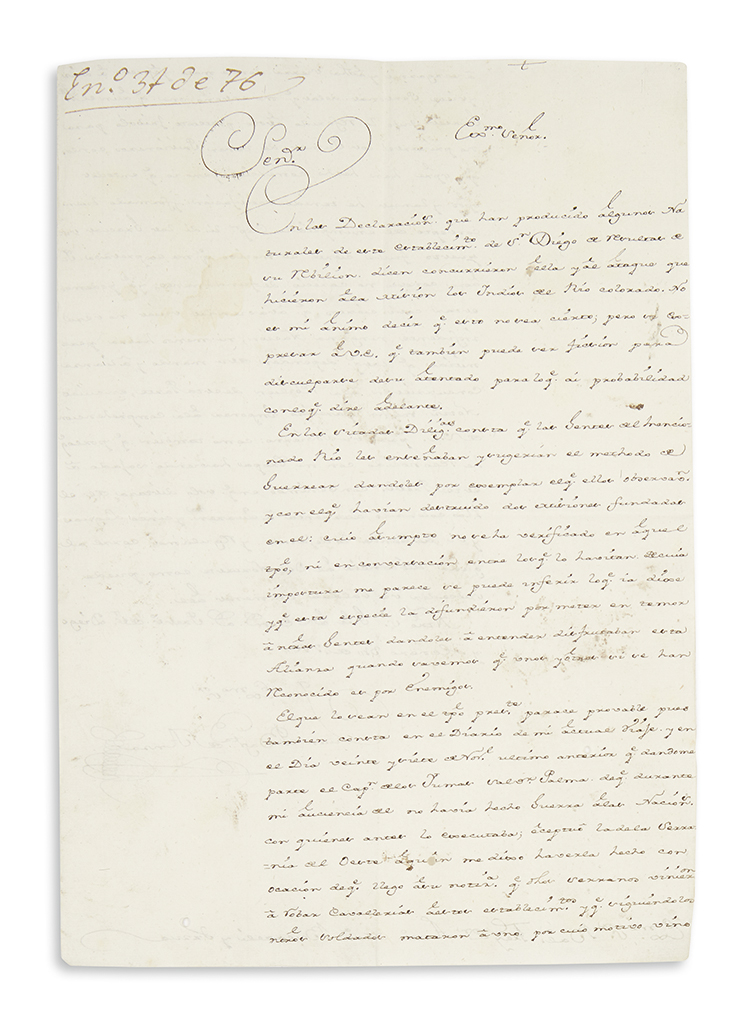 En.º 37 de 76
Send.r
Exmo. Señor.
En las Declaracion.s que han producido algunos Na
turales de este establecim.to de Sn. Diego de resultas de
su revilion dicen concurrieron a ella y al ataque que
hicieron a la Mision los Indios de Rio colorado. No
es mi animo decir q.e esto no sea cierto; pero si ex=
presar a V.E. q.e tambien puede ser ficcion para
disculparse de su atentado para lo q.e ai probabilidad
con lo q.e dire adelante.
En las citadas Dilig.as consta q.e las Gentes del mencio=
nado Rio les enseñaban y sugerian el methodo de
Guerrear dandoles por exemplar el q.e ellos observa.n
y con el q.e havian destruido dos misiones fundadas
en el: cuio asumpto no se ha verificado en aquel
tpo, ni en conversacion entre los q.e lo havitan. De cuia
impostura me parece se puede inferir lo q.e ia dixe
y q.e esta especie la difundieron por meter en temor
a nras Gentes dandoles a entender disfrutaban esta
Alianza quando savemos q.e unos y otros si se han
reconocido es por Enemigos.
El que lo sean en el tpo pres.te parece provable pues
tambien consta en el Diario de mi actual Viaje, y en
el Dia veinte y siete de Nov.e ultimo anterior q.e dandome
parte el Cap.n de los Yumas Salv.or Palma de q.e durante
mi auciencia el no havia hecho Guerra a las Nacion.s
con quienes antes lo executaba; eceptuo la de la Serra
=nia del Oeste a quien me dixo haverla hecho con
ocacion de q.e llego a su notic.a q.e dhos serranos vinier.on
a robar Cavallerias a estos establecim.tos y q.e siguiendolos
nros soldados mataron a uno por cuio motivo vino